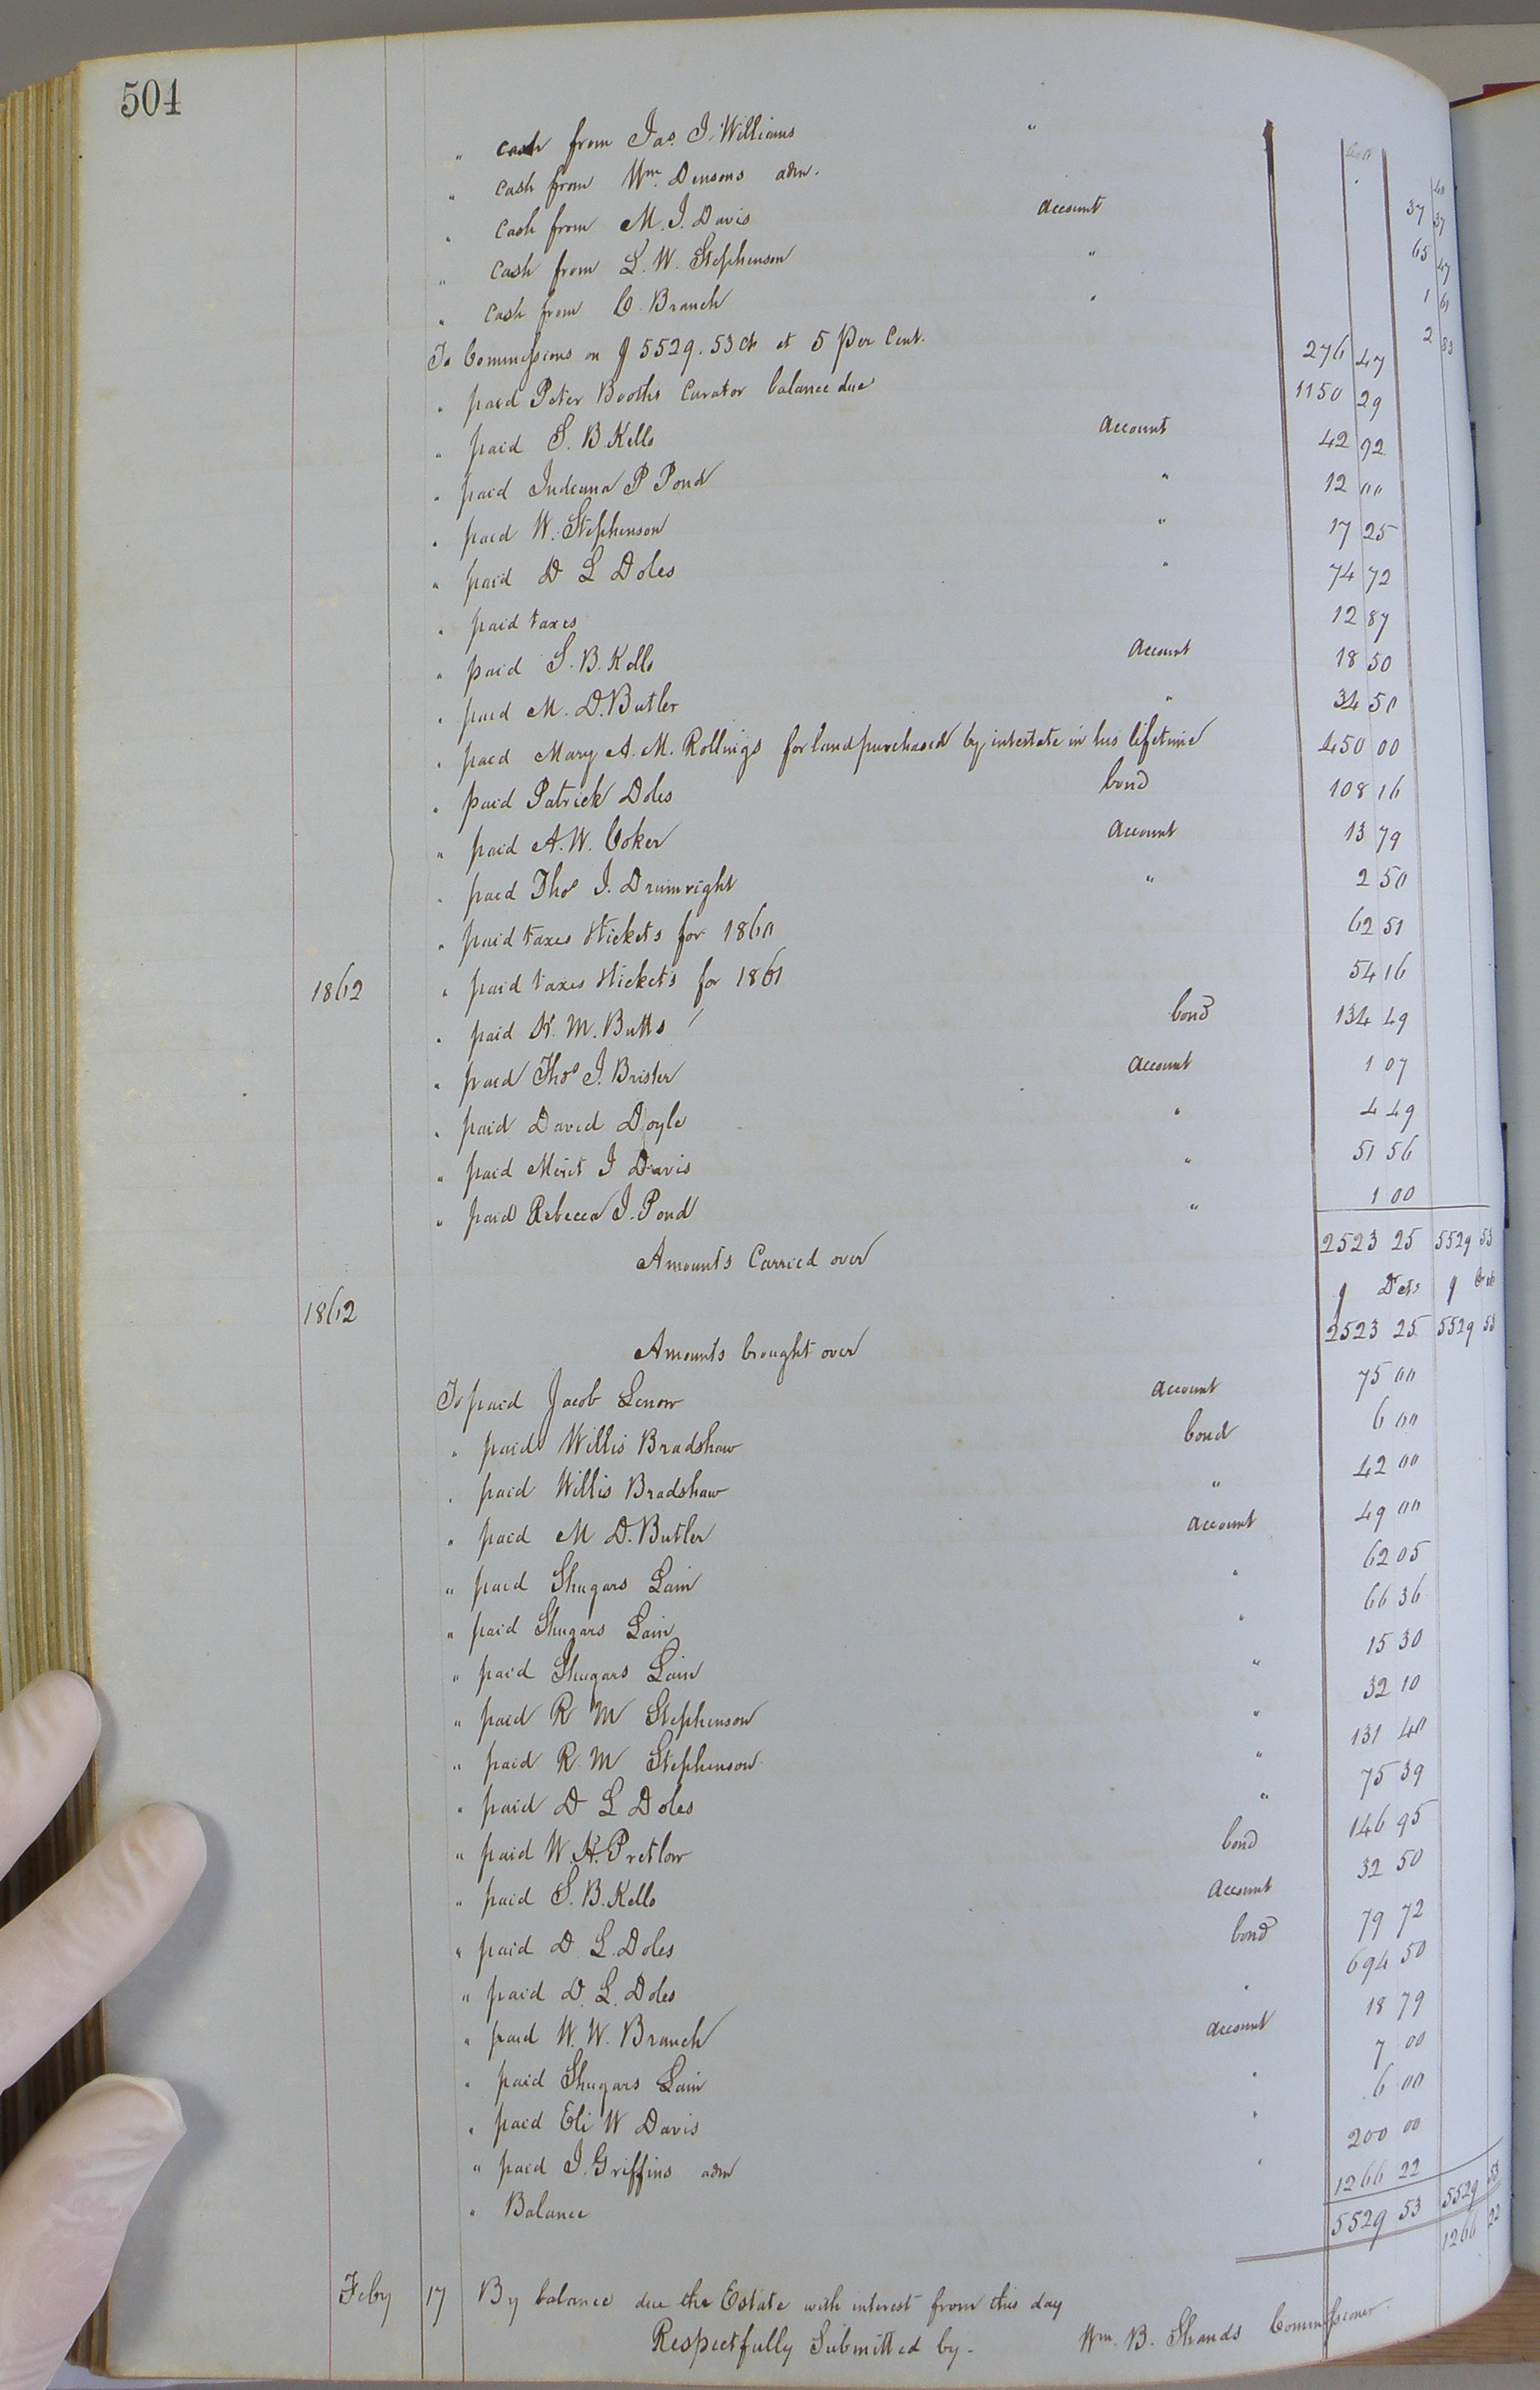 504
" cash from Jas. J. Williams "
" cash from Wm. Densons adm. 37 37
" cash from M. J. Davis Account 65 47
" cash from L. W. Stephenson " 1 61
" cash from C. Branch " 2 83
To Commissions on $5529.53 cts at 5 Per Cent. 276 47
" paid Peter Booths Curator balance due 1150 29
" paid S. B. Kello Account 42 92
" paid Indeana P Pond " 12 00
" paid W. Stephenson " 17 25
" paid D L Doles " 74 72
" paid taxes 12 87
" paid S. B. Kello Account 18 50
" paid M. D. Butler " 34 50
" paid Mary A. M. Rollings for land purchased by intestate in his lifetime 450 00
" paid Patrick Doles bond 108 16
" paid A. W. Coker Account 13 79
" paid Thos J. Drumright " 2 50
" paid taxes tickets for 1860 62 51
1862 " paid taxes tickets for 1861 54 16
" paid K. M. Butts bond 134 49
" paid Thos J. Brister Account 1 07
" paid David Doyle " 4 49
" paid Merit J Davis " 51 56
" paid Rebecca J. Pond " 1 00
Amounts Carried over 2523 25 5529 53
1862 $ Dcts $
Amounts brought over 2523 25 5529 53
To paid Jacob Lenow Account 75 00
" paid Willis Bradshaw bond 6 00
" paid Willis Bradshaw " 42 00
" paid M D. Butler Account 49 00
" paid Shugars Lain " 62 05
" paid Shugars Lain " 66 36
" paid Shugars Lain " 15 30
" paid R M Stephenson " 32 10
" paid R. M Stephenson " 131 40
" paid D L Doles " 75 39
" paid W. H. Pretlow bond 146 95
" paid S. B. Kello Account 32 50
" paid D. L. Doles bond 79 72
" paid D. L. Doles " 694 50
" paid W. W. Branch Account 18 79
" paid Shugars Lain " 7 00
" paid Eli W Davis " 6 00
" paid J. Griffins adm " 200 00
" Balance 1266 22
5529 53 5529 53
Feby 17 By balance due the Estate with interest from this day 1266 22
Respectfully Submitted by- Wm. B. Shands Commissioner.